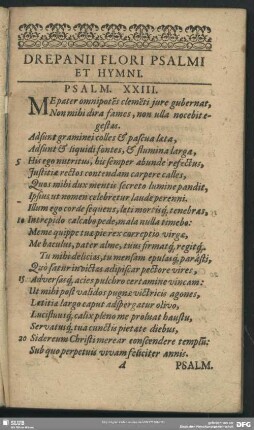 DREPANII FLORI PSALMI
ET HYMNI.
PSALM. XXIII.
MEpater omnipotēs clemēti jure gubernat,
Non mihi dira fames, non ulla nocebit e-
gestas.
Adsunt graminei colles & pascua lata,
Adsunt & liquidi fontes, & flumina larga,
5 His ego nutritus, his semper abunde refectus,
Justitiæ rectos contendam carpere calles,
Quos mihi dux mentis secreto lumine pandit,
Ipsius ut nomen celebretur laude perenni.
Illum ego corde sequens, leti mortisq́, tenebras,
10 Intrepido calcabo pede, mala nulla timebo:
Meme quippe tuæ pie rex correptio virgæ,
Me baculus, pater alme, tuus firmatq́, regitq́.
Tu mihi delicias, tu mensam epulasq́, parâsti,
Quo satur invictas adipiscar pectore vires,
15 Adversasq́, acies pulchro certamine vincam:
Ut mihi post validos pugnæ victricis agones,
Lætitia largo caput adspergatur olivo,
Lucisluusq́, calix pleno me proluat haustu,
Servatusq́, tua cunctis pietate diebus,
20 Sidereum Christi merear conscendere templū:
Sub quo perpetuis vivam feliciter annis.
A PSALM.
SLUB
DFG